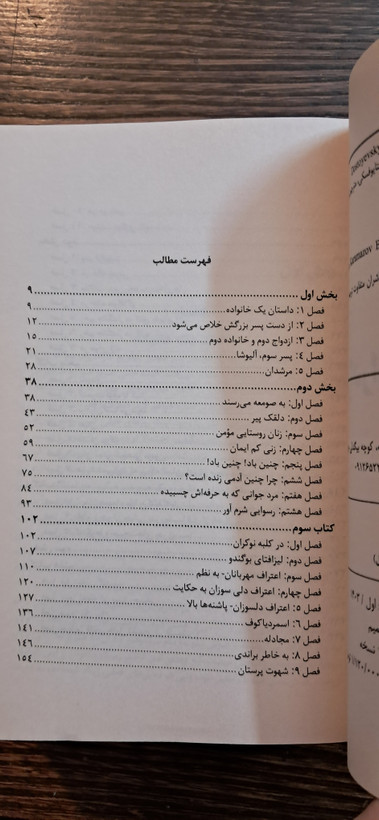 فهرست مطالب
بخش اول ۹
فصل ۱: داستان یک خانواده ۹
فصل ۲: از دست پسر بزرگش خلاص می‌شود ۱۲
فصل ۳: ازدواج دوم و خانواده دوم ۱۵
فصل ٤: پسر سوم، آلیوشا ۲۱
فصل ٥: مرشدان ۲۸
بخش دوم ۳۸
فصل اول: به صومعه می‌رسند ۳۸
فصل دوم: دلقک پیر ٤۳
فصل سوم: زنان روستایی مؤمن ٥۲
فصل چهارم: زنی کم ایمان ٥۹
فصل پنجم: چنین باد! چنین باد! ٦۷
فصل ششم: چرا چنین آدمی زنده است؟ ۷٥
فصل هفتم: مرد جوانی که به حرفه‌اش چسبیده ۸٤
فصل هشتم: رسوایی شرم آور ۹۳
کتاب سوم ۱۰۲
فصل اول: در کلبه نوکران ۱۰۲
فصل دوم: لیزافتای بوگندو ۱۰۷
فصل سوم: اعتراف مهربانان- به نظم ۱۱۰
فصل چهارم: اعتراف دلی سوزان به حکایت ۱۲۰
فصل ٥: اعتراف دلسوزان- پاشنه‌ها بالا ۱۲۷
فصل ٦: اسمردیاکوف ۱۳٦
فصل ۷: مجادله ۱٤۱
فصل ۸: به خاطر براندی ۱٤٦
فصل ۹: شهوت پرستان ۱٥٤
Dostoyevsky
Karamazov